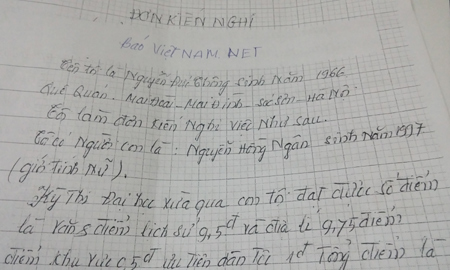 ĐƠN KIẾN NGHỊ
Báo VIỆT NAM NET
Tên tôi là Nguyễn Đức Thông Sinh Năm 1966
Quê Quán. Mai Đoài - Mai Đình - Sóc Sơn - Hà Nội
Tôi làm đơn Kiến Nghị Việc Như Sau.
Tôi có Người con là: Nguyễn Hồng Ngân sinh Năm 1997
(giới tính Nữ).
Kỳ Thi Đại học vừa qua con tôi đạt được số điểm
là văn 8 điểm lịch sử 9,5đ và địa lí 9,75 điểm
điểm khu vực 0,5đ ưu tiên dân tộc 1đ Tổng điểm là